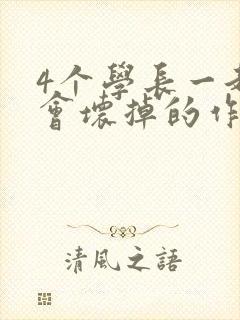 4个學長一
會壞掉的作
清風之語